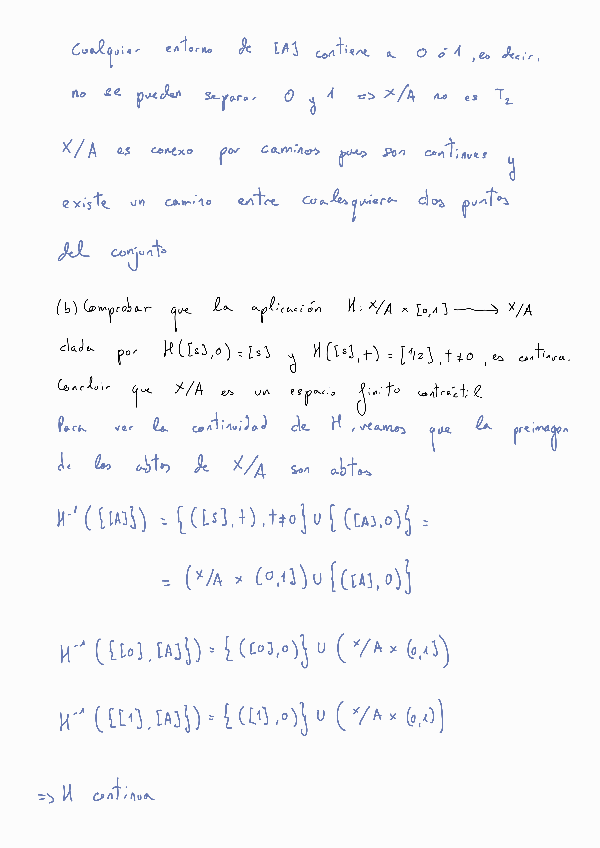 Cualquier entorno de [A] contiene a 0 ó 1, es decir,
no se pueden separar 0 y 1 => X/A no es T₂
X/A es conexo por caminos pues son continuas y
existe un camino entre cualesquiera dos puntos
del conjunto
(b) Comprobar que la aplicación H: X/A × [0,1] ⟶ X/A
dada por H([s],0) = [s] y H([s],t) = [1/2], t≠0, es continua.
Concluir que X/A es un espacio finito contráctil.
Para ver la continuidad de H, veamos que la preimagen
de los abtos de X/A son abtos
H⁻¹({[A]}) = {([s],t), t≠0} ∪ {([A],0)} =
= (X/A × (0,1]) ∪ {([A],0)}
H⁻¹({[0],[A]}) = {([0],0)} ∪ (X/A × (0,1])
H⁻¹({[1],[A]}) = {([1],0)} ∪ (X/A × (0,1])
=> H continua